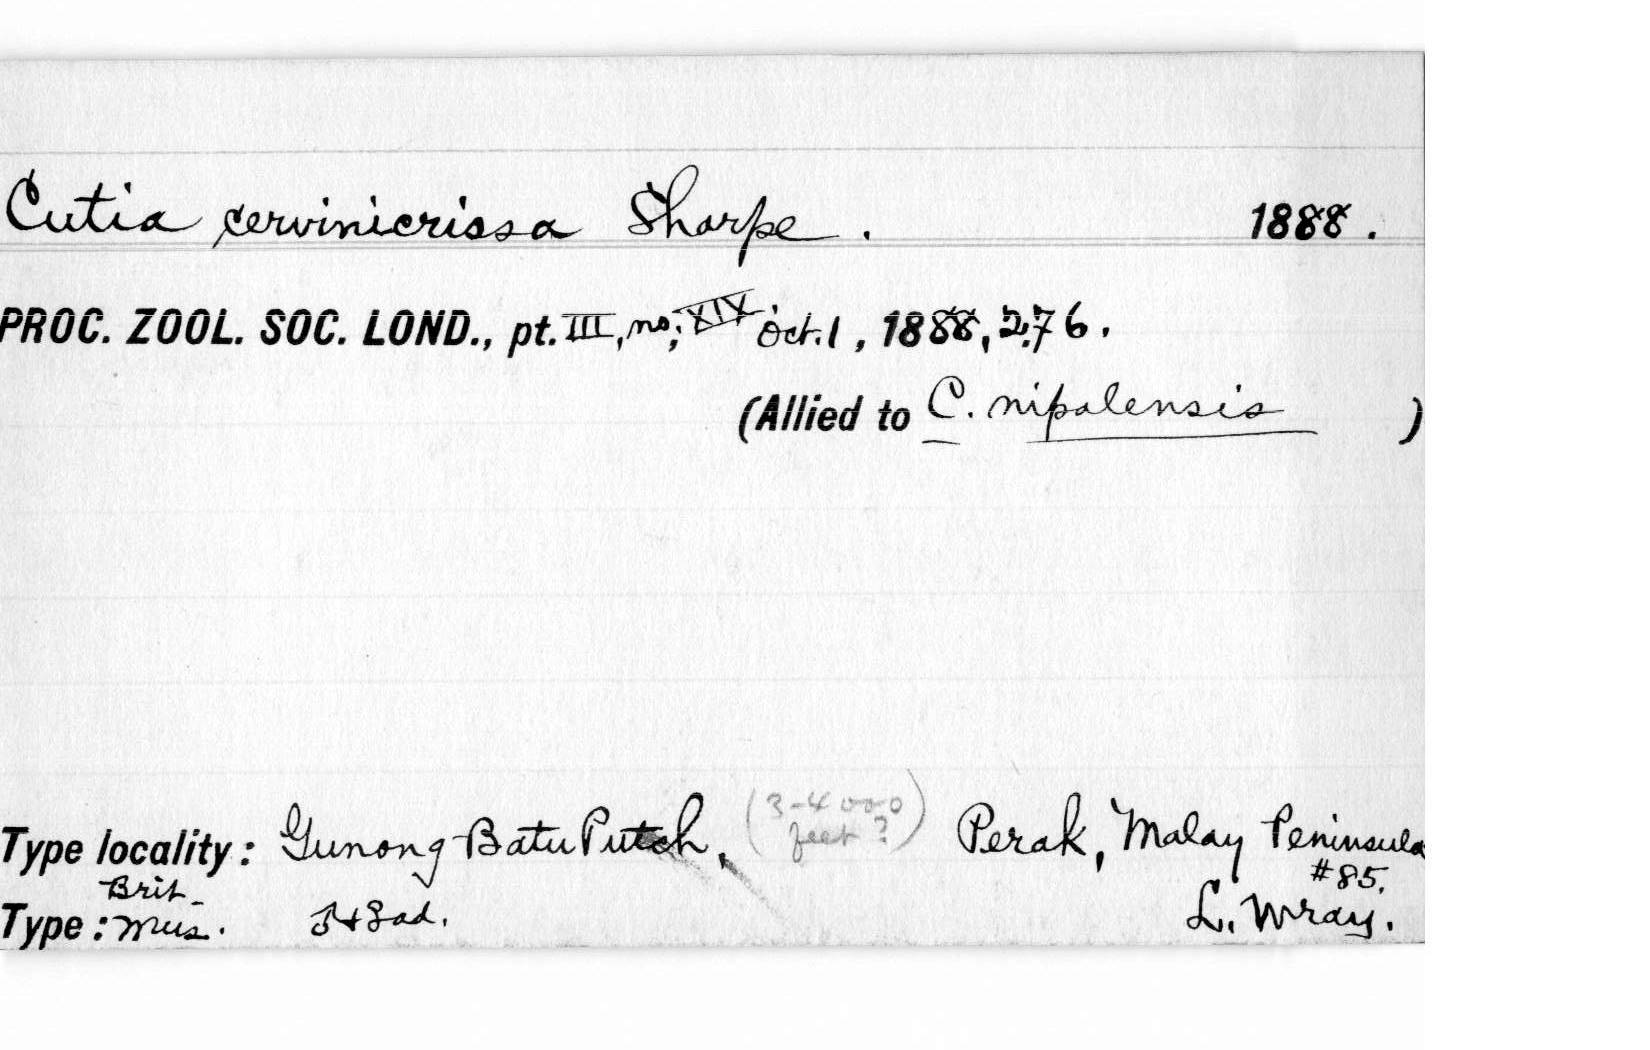 Cutia cervinicrissa Sharpe. 1888.
PROC. ZOOL. SOC. LOND., pt. III, no; XIX Oct. 1, 1888, 276.
(Allied to C. nipalensis )
Type locality: Gunong Batu Putch, (3-4000 feet ?) Perak, Malay Peninsula
#85.
Type: Brit. Mus. ad. L. Wray.